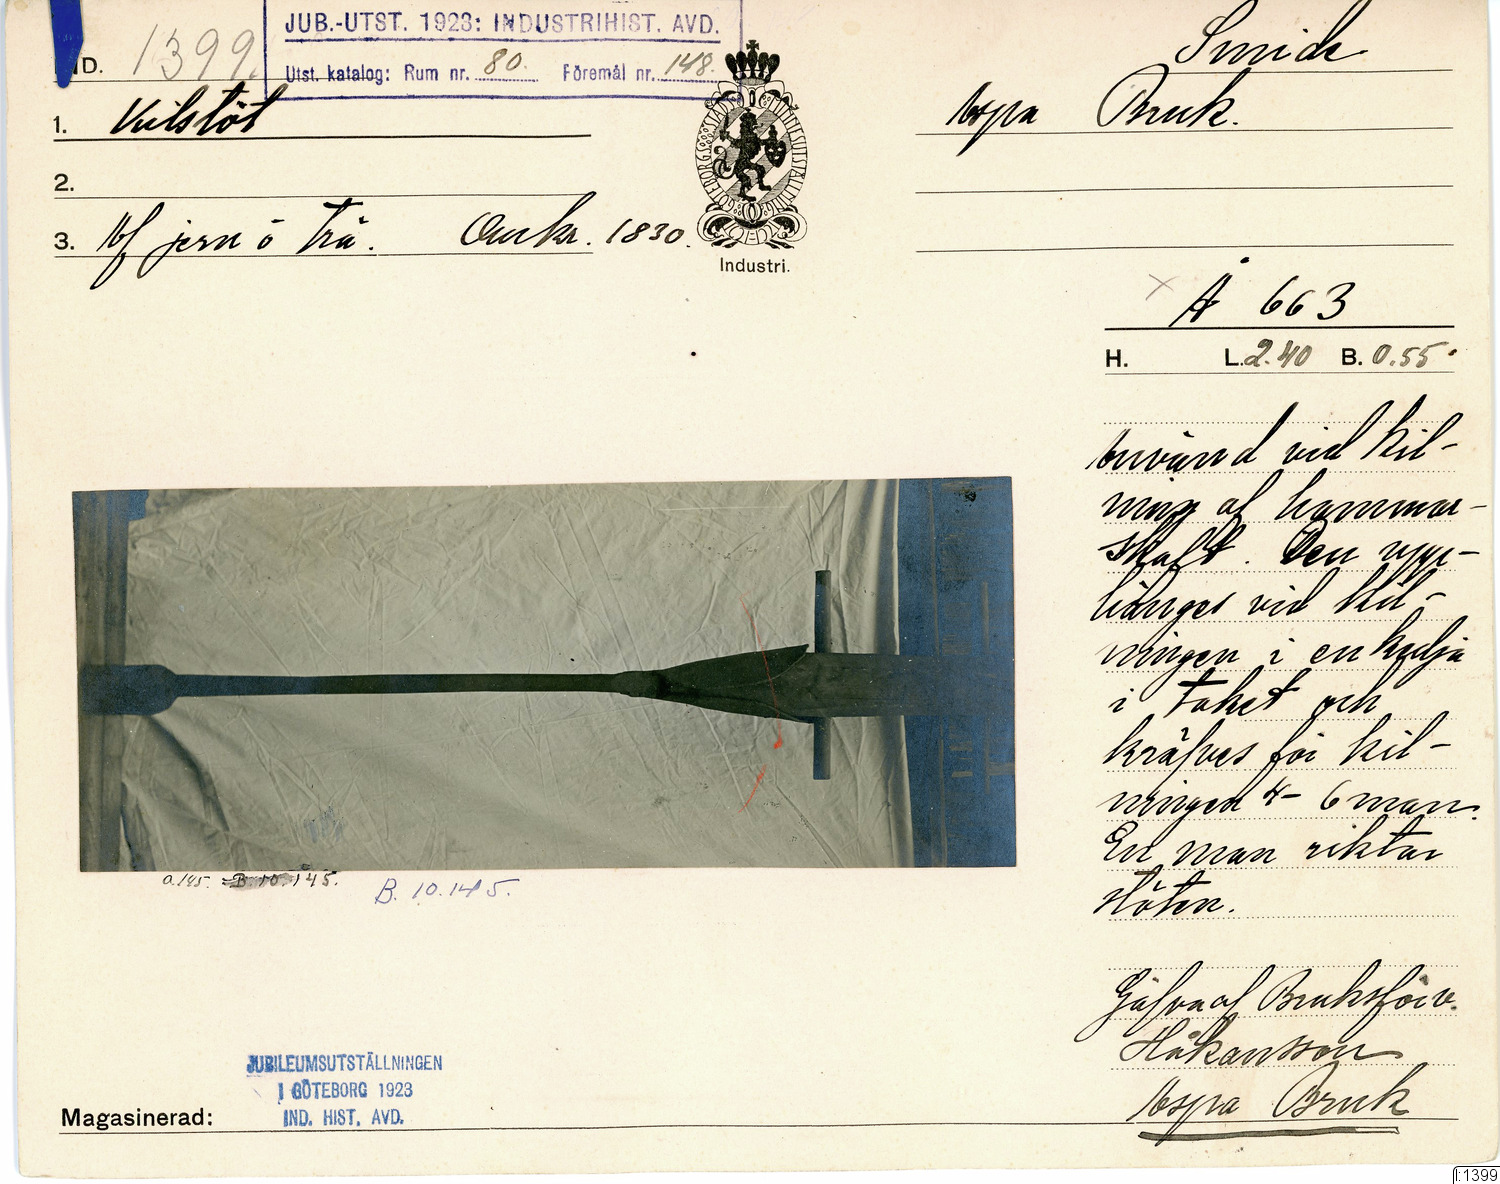 JUB.-UTST. 1923: INDUSTRIHIST. AVD.
Utst. katalog: Rum nr. 80. Föremål nr. 148.
IND. 1399.
1. Kilstöt
2.
3. Af jern o trä. Omkr. 1830.
GÖTEBORGS STADS MINNESUTSTÄLLNING
Industri.
Smide
Aspa Bruk.
Å 663
H. L. 2.40 B. 0.55
Använd vid kil-
ning af hammar-
skaft. Den upp-
hänges vid kil-
ningen i en kedja
i taket och
kräfves för kil-
ningen 4-6 man.
En man riktar
stöten.
Gåfva af Bruksförv.
Håkansson
Aspa Bruk
a.145. B.10.145.
B. 10.145.
JUBILEUMSUTSTÄLLNINGEN
I GÖTEBORG 1923
IND. HIST. AVD.
Magasinerad:
I:1399